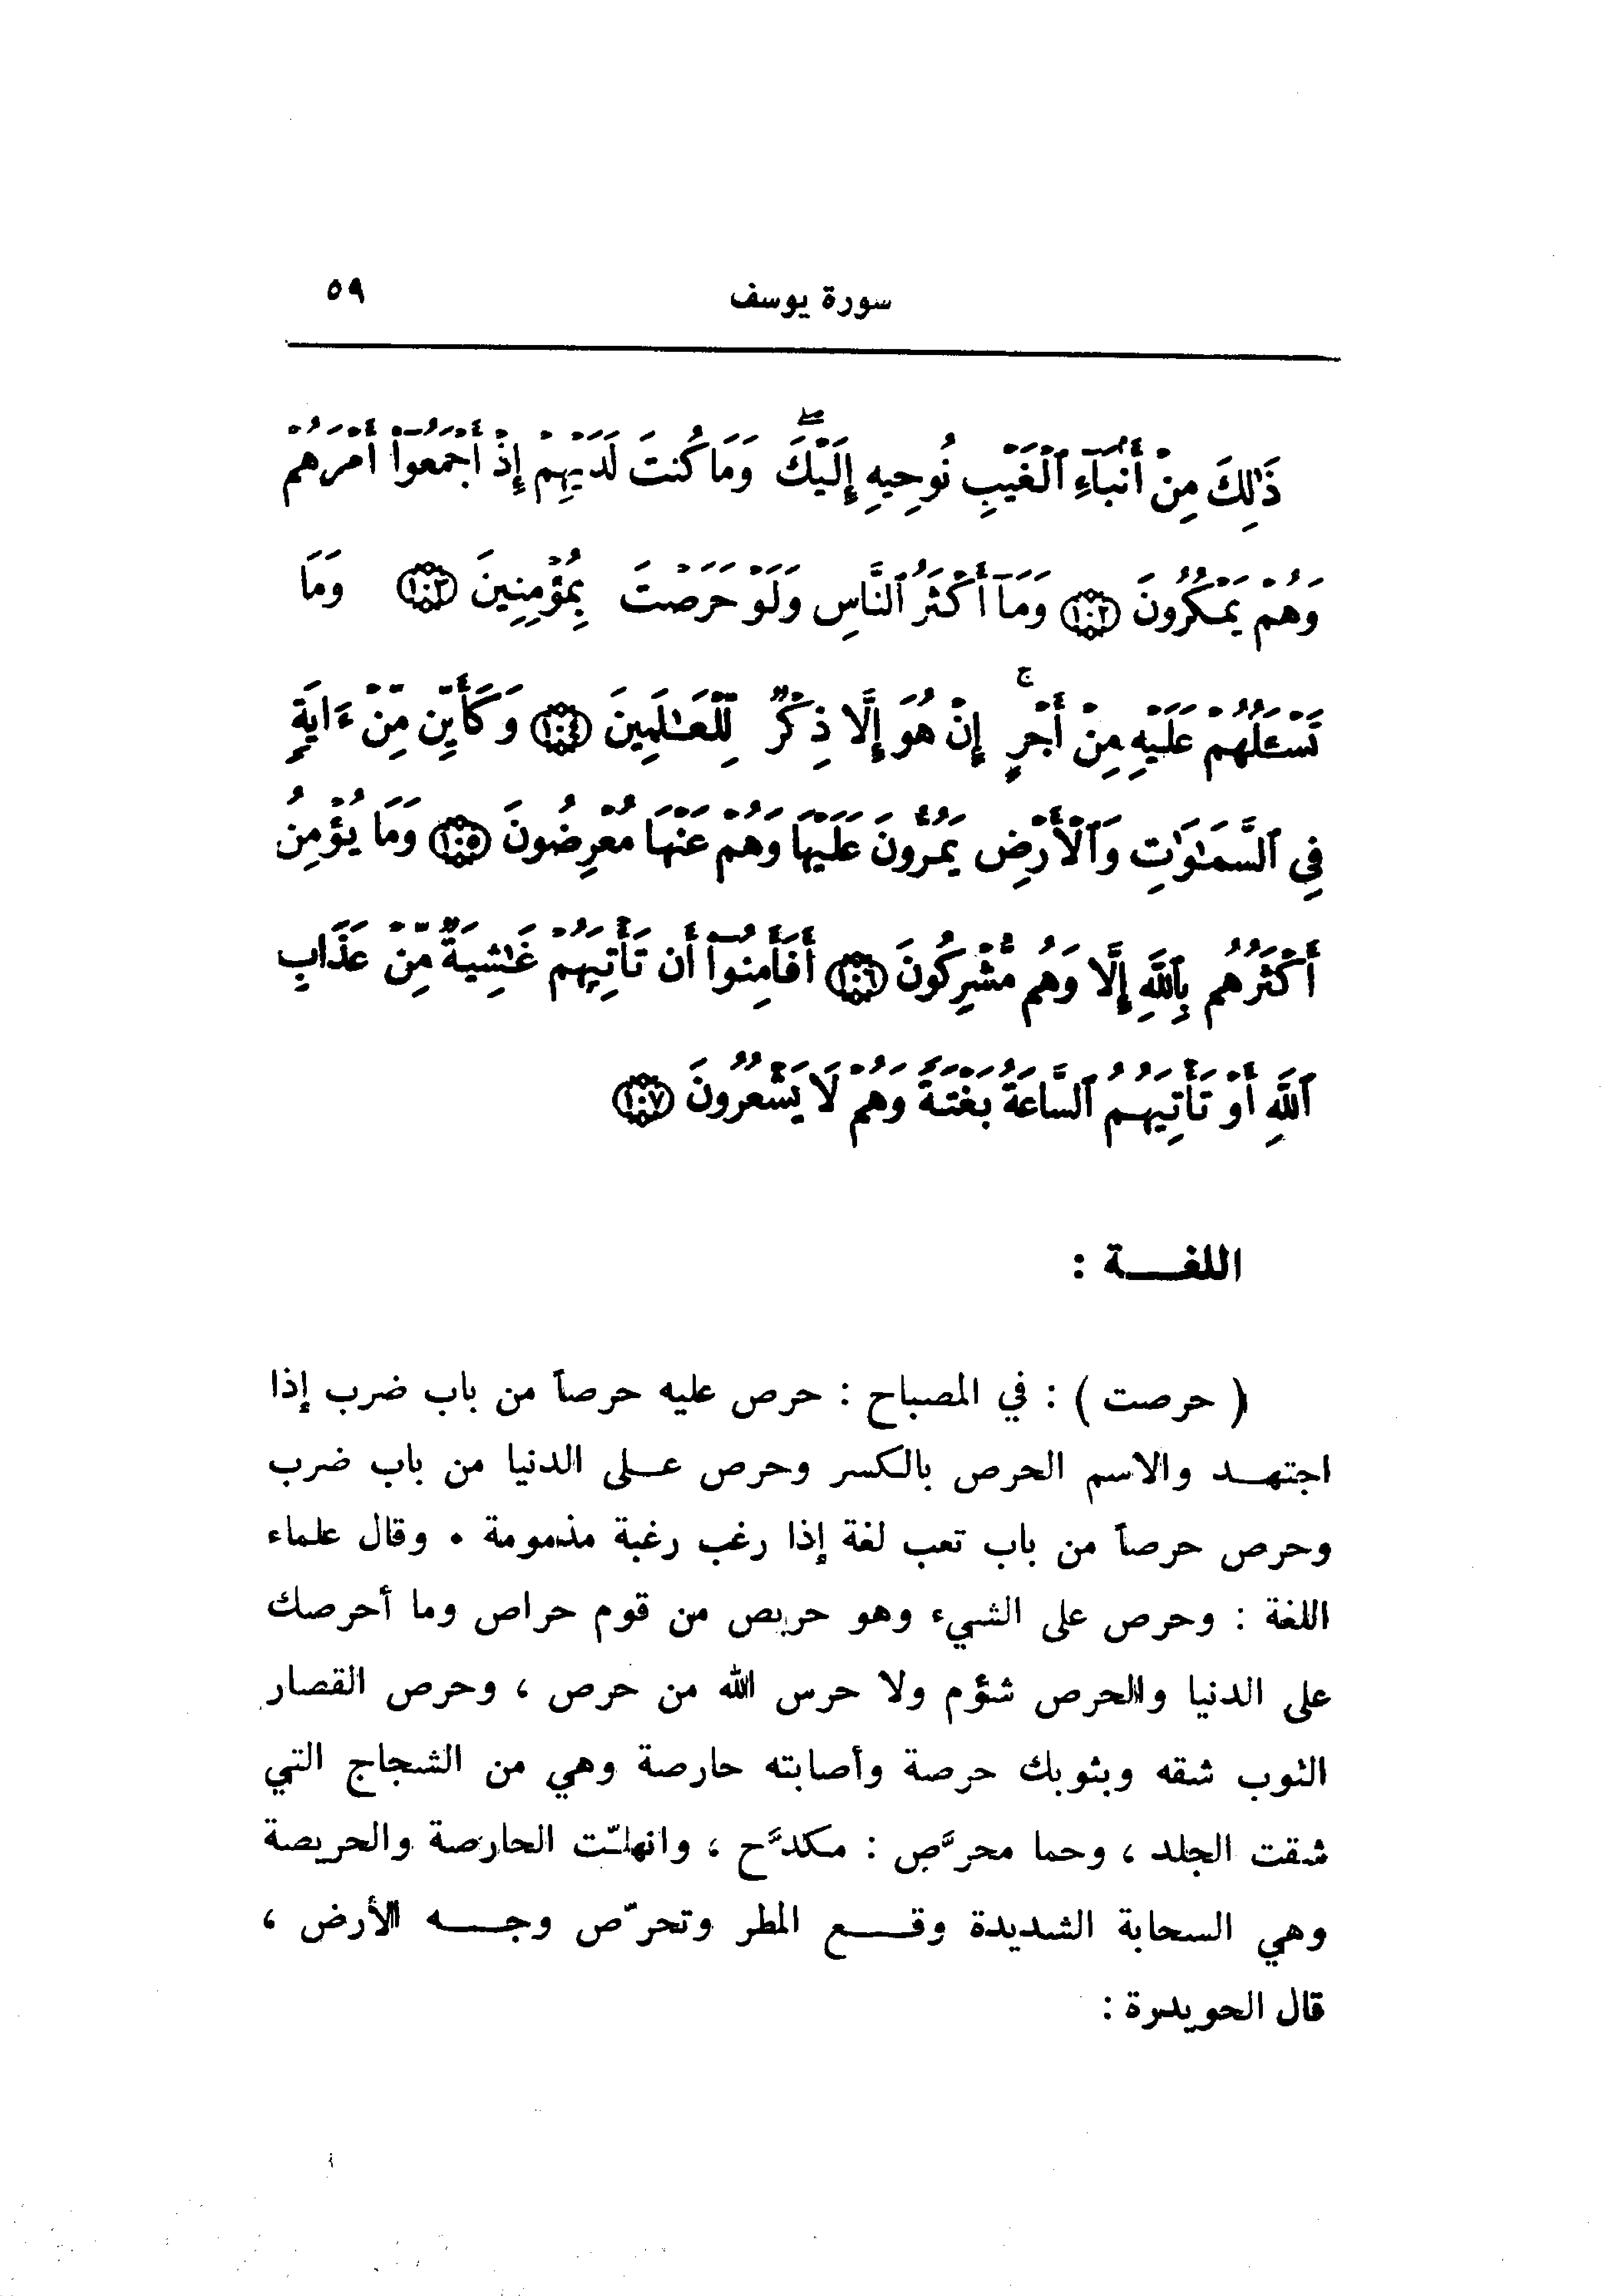 سورة يوسف ٥٩
ذَٰلِكَ مِنْ أَنۢبَآءِ ٱلْغَيْبِ نُوحِيهِ إِلَيْكَ ۖ وَمَا كُنتَ لَدَيْهِمْ إِذْ أَجْمَعُوٓا۟ أَمْرَهُمْ
وَهُمْ يَمْكُرُونَ ﴿١٠٢﴾ وَمَآ أَكْثَرُ ٱلنَّاسِ وَلَوْ حَرَصْتَ بِمُؤْمِنِينَ ﴿١٠٣﴾ وَمَا
تَسْـَٔلُهُمْ عَلَيْهِ مِنْ أَجْرٍ ۚ إِنْ هُوَ إِلَّا ذِكْرٌ لِّلْعَـٰلَمِينَ ﴿١٠٤﴾ وَكَأَيِّن مِّنْ ءَايَةٍ
فِى ٱلسَّمَـٰوَٰتِ وَٱلْأَرْضِ يَمُرُّونَ عَلَيْهَا وَهُمْ عَنْهَا مُعْرِضُونَ ﴿١٠٥﴾ وَمَا يُؤْمِنُ
أَكْثَرُهُم بِٱللَّهِ إِلَّا وَهُم مُّشْرِكُونَ ﴿١٠٦﴾ أَفَأَمِنُوٓا۟ أَن تَأْتِيَهُمْ غَـٰشِيَةٌ مِّنْ عَذَابِ
ٱللَّهِ أَوْ تَأْتِيَهُمُ ٱلسَّاعَةُ بَغْتَةً وَهُمْ لَا يَشْعُرُونَ ﴿١٠٧﴾
اللغـــة :
( حرصت ) : في المصباح : حرص عليه حرصاً من باب ضرب إذا
اجتهـد والاسم الحرص بالكسر وحرص عـلى الدنيا من باب ضرب
وحرص حرصاً من باب تعب لغة إذا رغب رغبة مذمومة . وقال علماء
اللغة : وحرص على الشيء وهو حريص من قوم حراص وما أحرصك
على الدنيا والحرص شؤم ولا حرس الله من حرص ، وحرص القصار
الثوب شقه وبثوبك حرصة وأصابته حارصة وهي من الشجاج التي
شقت الجلد ، وحما محرَّص : مكدَّح ، وانهلّت الحارصة والحريصة
وهي السحابة الشديدة وقـــع المطر وتحرّص وجـــه الأرض ،
قال الحويدرة :